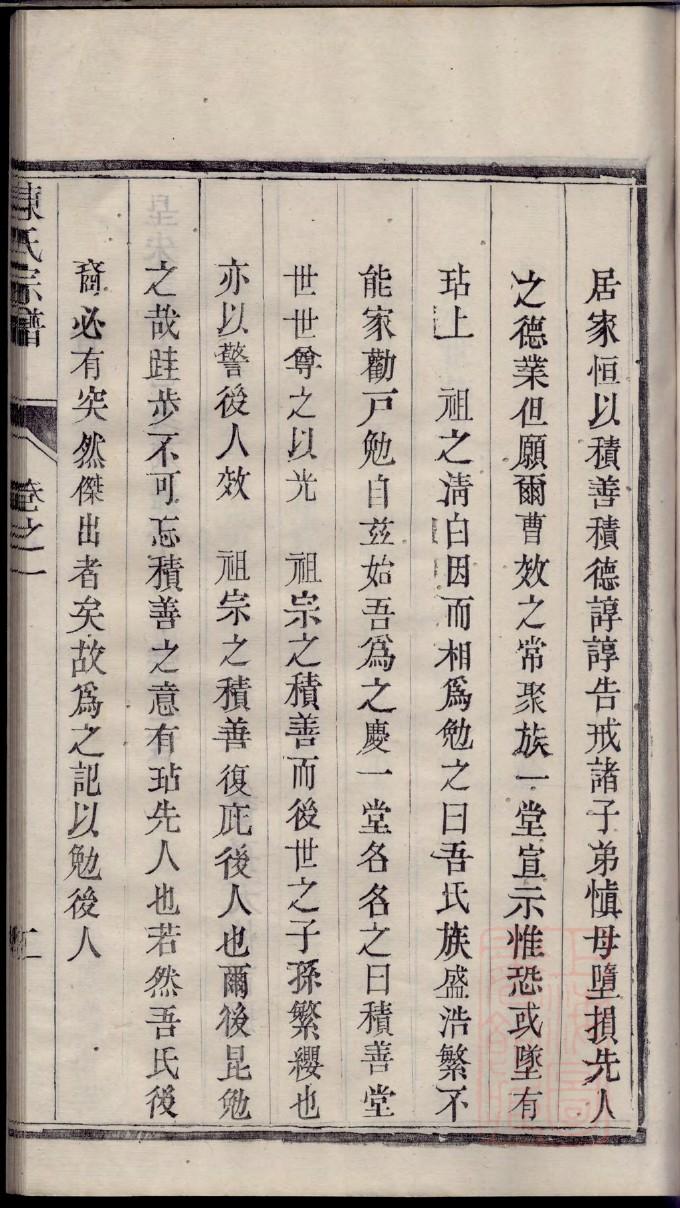 居家恒以積善積德諄諄告戒諸子弟愼母墮損先人
之德業但願爾曹效之常聚族一堂宣示惟恐或墜有
玷上　祖之淸白因而相爲勉之曰吾氏族盛浩繁不
能家勸戸勉自茲始吾爲之慶一堂各名之曰積善堂
世世尊之以光　祖宗之積善而後世之子孫繁纓也
亦以警後人效　祖宗之積善復庇後人也爾後昆勉
之哉跬步不可忘積善之意有玷先人也若然吾氏後
裔必有突然傑出者矣故爲之記以勉後人
陳氏宗譜
卷之一